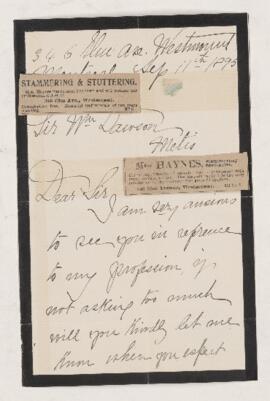 346 Elm Ave. Westmount
Montreal Sep 11th 1895
STAMMERING & STUTTERING.
346 Elm Ave., Westmount.
Sir Wm Dawson
Metis
Miss HAYNES,
346 Elm Avenue, Westmount.
Dear Sir,
I am very anxious
to see you in reference
to my profession, if
not asking too much
will you kindly let me
know when you expect